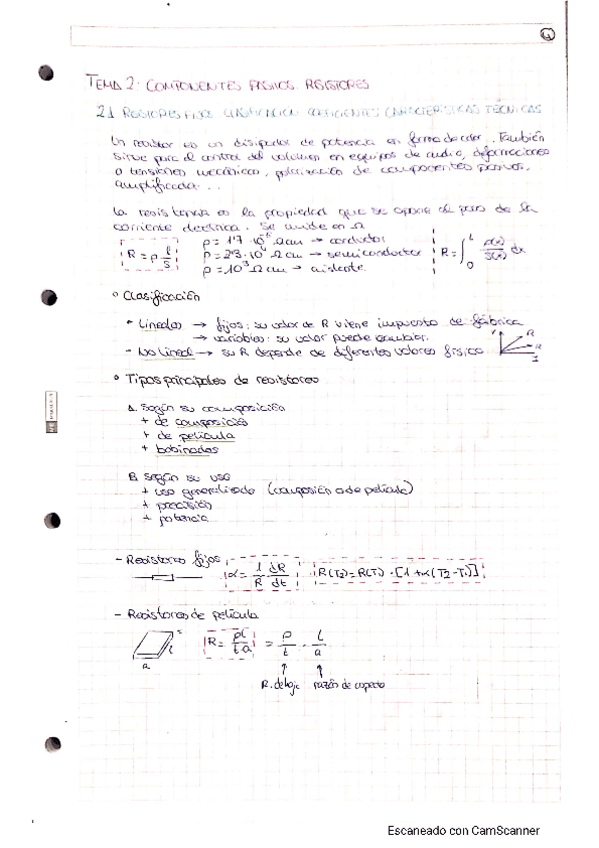 TEMA 2: COMPONENTES PASIVOS. RESISTORES
2.1 RESISTORES FIJOS. CLASIFICACIÓN. COEFICIENTES. CARACTERÍSTICAS TÉCNICAS
Un resistor es un disipador de potencia en forma de calor. También
sirve para el control del volumen en equipos de audio, deformaciones
o tensiones mecánicas, polarización de componentes pasivos,
amplificador...
La resistencia es la propiedad que se opone al paso de la
corriente eléctrica. Se mide en Ω
R = ρ l/s
ρ = 1'7 · 10⁻⁶ Ωcm → conductor
ρ = 2'3 · 10⁴ Ωcm → semiconductor
ρ = 10³ Ωcm → aislante
R = ∫₀ᴸ ρ(x)/S(x) dx
° Clasificación
- Lineales → fijos: su valor de R viene impuesto de fábrica
→ variables: su valor puede cambiar.
- No lineal → su R depende de diferentes valores físicos
° Tipos principales de resistores
A. Según su composición
+ de composición
+ de película
+ bobinados
B. Según su uso
+ uso generalizado (composición o de película)
+ precisión
+ potencia
- Resistores fijos
α = 1/R dR/dt
R(T2) = R(T1) · [1 + α(T2-T1)]
- Resistores de película
l
a
R = ρl/ta = ρ/t · l/a
R. de hoja razón de aspecto
Escaneado con CamScanner